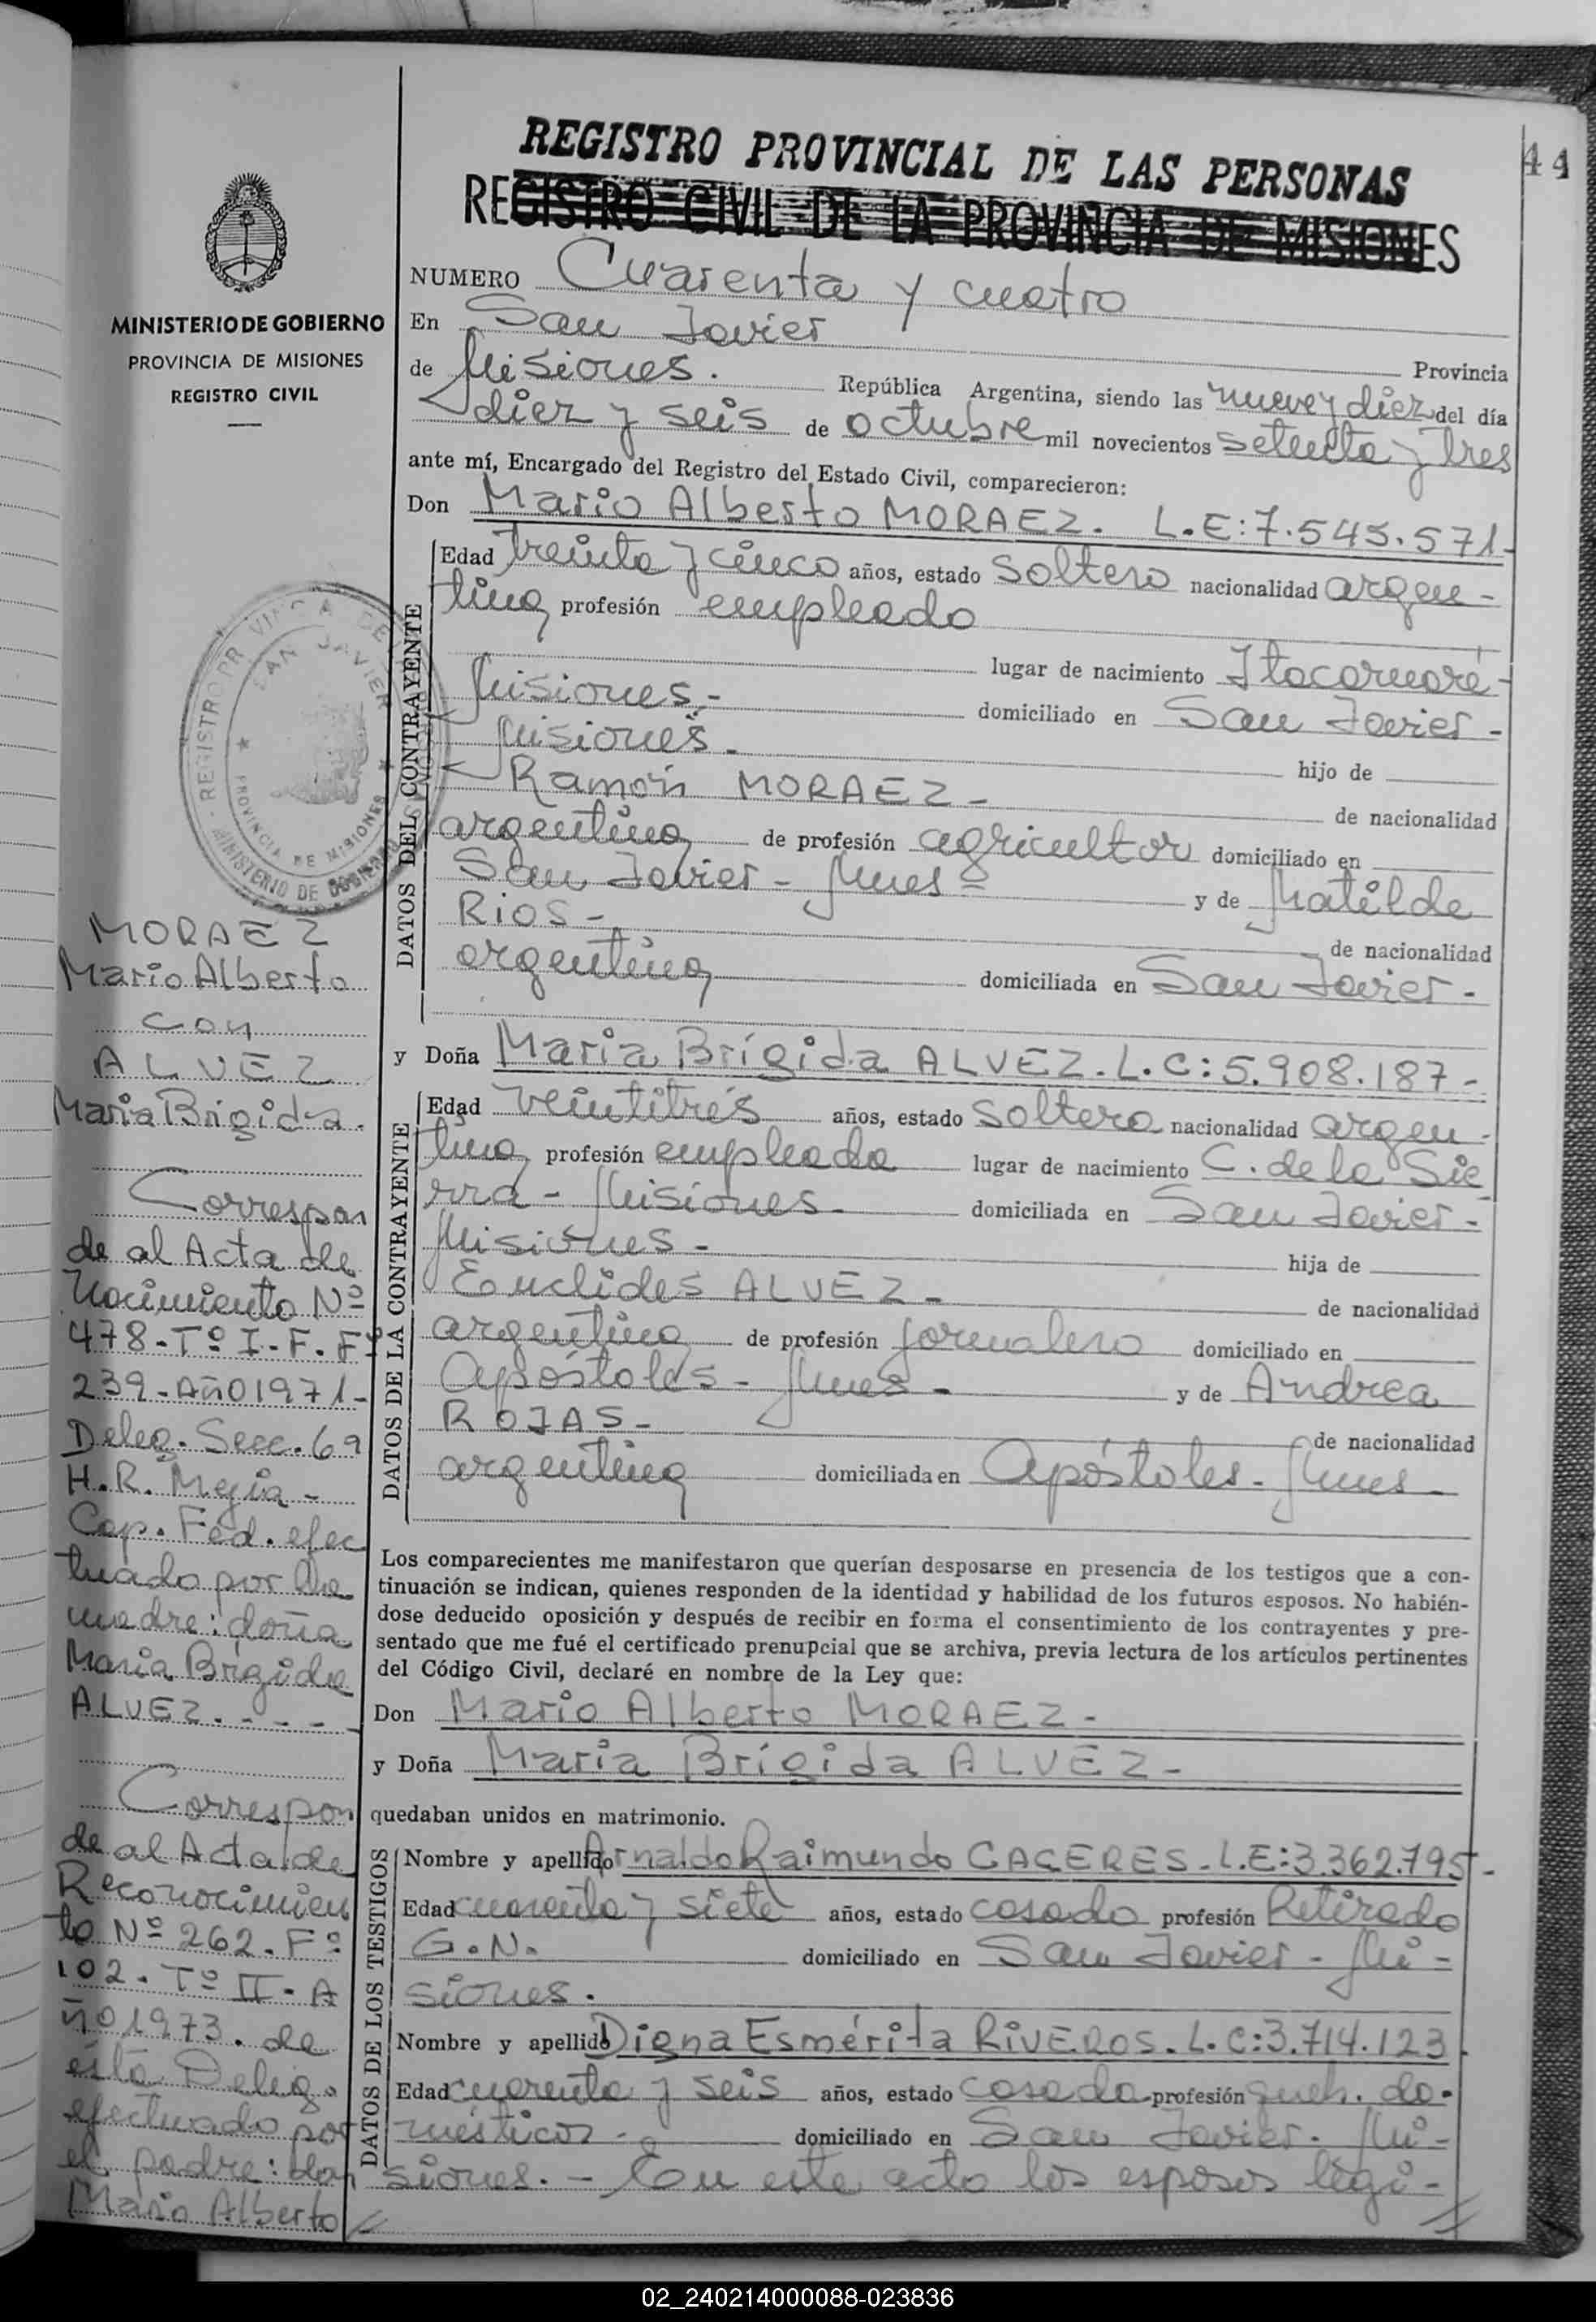 44
REGISTRO PROVINCIAL DE LAS PERSONAS
REGISTRO CIVIL DE LA PROVINCIA DE MISIONES
NUMERO Cuarenta y cuatro
En San Javier
Provincia
de Misiones. República Argentina, siendo las nueve y diez del día
diez y seis de octubre mil novecientos setenta y tres
ante mí, Encargado del Registro del Estado Civil, comparecieron:
Don Mario Alberto MORAEZ. L.E:7.545.571-
DATOS DEL CONTRAYENTE
Edad treinta y cinco años, estado soltero nacionalidad argen-
tina profesión empleado
lugar de nacimiento Itacaruaré-
Misiones.- domiciliado en San Javier-
Misiones.-
hijo de
Ramón MORAEZ-
de nacionalidad
argentina de profesión agricultor domiciliado en
San Javier- Mnes- y de Matilde
RIOS-
de nacionalidad
argentina domiciliada en San Javier-
y Doña Maria Brígida ALVEZ. L.C:5.908.187-
DATOS DE LA CONTRAYENTE
Edad veintitrés años, estado soltera nacionalidad argen-
tina profesión empleada lugar de nacimiento C. de la Sie
rra- Misiones- domiciliada en San Javier-
Misiones-
hija de
Euclides ALVEZ-
de nacionalidad
argentina de profesión jornalero domiciliado en
Apóstoles- Mnes- y de Andrea
ROJAS-
de nacionalidad
argentina domiciliada en Apóstoles- Mnes-
Los comparecientes me manifestaron que querían desposarse en presencia de los testigos que a con-
tinuación se indican, quienes responden de la identidad y habilidad de los futuros esposos. No habién-
dose deducido oposición y después de recibir en forma el consentimiento de los contrayentes y pre-
sentado que me fué el certificado prenupcial que se archiva, previa lectura de los artículos pertinentes
del Código Civil, declaré en nombre de la Ley que:
Don Mario Alberto MORAEZ-
y Doña Maria Brígida ALVEZ-
quedaban unidos en matrimonio.
DATOS DE LOS TESTIGOS
Nombre y apellido Arnaldo Raimundo CACERES-L.E:3.362.795-
Edad cuarenta y siete años, estado casado profesión Retirado
G.N. domiciliado en San Javier- Mi-
siones.
Nombre y apellido Digna Esmérita RIVEROS. L.C:3.714.123
Edad cuarenta y seis años, estado casada profesión queh. do-
mésticos- domiciliado en San Javier. Mi-
siones.- En este acto los esposos legi-
MINISTERIO DE GOBIERNO
PROVINCIA DE MISIONES
REGISTRO CIVIL
REGISTRO PROVINCIAL DE
SAN JAVIER
PROVINCIA DE MISIONES
MINISTERIO DE GOBIERNO
MORAEZ
Mario Alberto
con
ALVEZ
Maria Brigida.
Correspon
de al Acta de
Nacimiento Nº
478-Tº I-F. Fº
239-Año 1971-
Deleg. Secc. 6ª
H.R. Mejia-
Cap. Fed. efec
tuado por la
madre: doña
Maria Brigida
ALVEZ.
Correspon
de al Acta de
Reconocimien
to Nº 262. Fº
102. Tº II-A
ño 1973. de
esta Deleg.
efectuado por
el padre: don
Mario Alberto
02_240214000088-023836